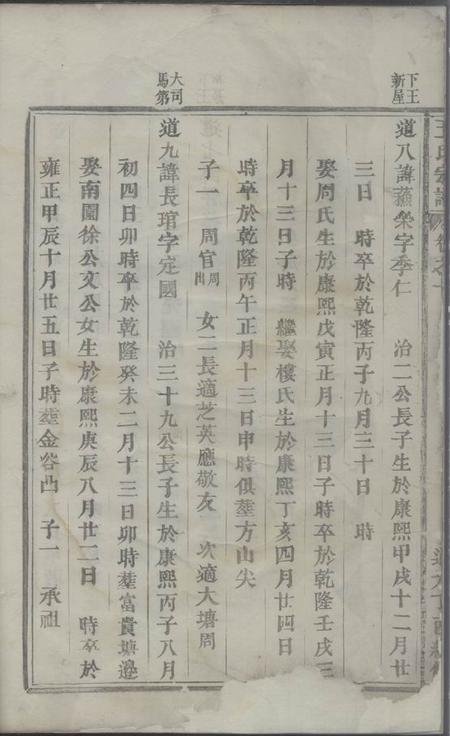 王氏宗譜 卷之十
下王新屋
道八諱蘓榮字季仁 治二公長子生於康熙甲戌十二月廿
三日 時卒於乾隆丙子九月三十日 時
娶周氏生於康熙戊寅正月十三日子時卒於乾隆壬戌三
月十三日子時 繼娶樓氏生於康熙丁亥四月廿四日
時卒於乾隆丙午正月十三日申時俱塟方山尖
子一 周官周出 女二長適芝英應敬友 次適大塘周
大司馬第
道九諱長琯字定國 治三十九公長子生於康熙丙子八月
初四日卯時卒於乾隆癸未二月十三日卯時塟富貴塘邊
娶南園徐公文公女生於康熙庚辰八月廿二日 時卒於
雍正甲辰十月廿五日子時塟金谷凸 子一 承祖